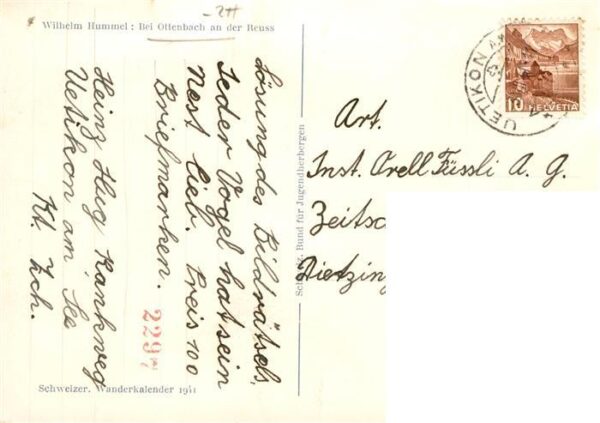 - 2H
Wilhelm Hummel: Bei Ottenbach an der Reuss
Lösung des Bildrätsels,
Jeder Vogel hat sein
Nest lieb. Preis 100
Briefmarken.
Heinz Hug Rankweg
Uetikon am See
Kt. Zch.
2297
Schweizer. Wanderkalender 1941
Schweiz. Bund für Jugendherbergen
UETIKON
10 HELVETIA
Art.
Inst. Orell Füssli A. G.
Zeitsc
Dietzing